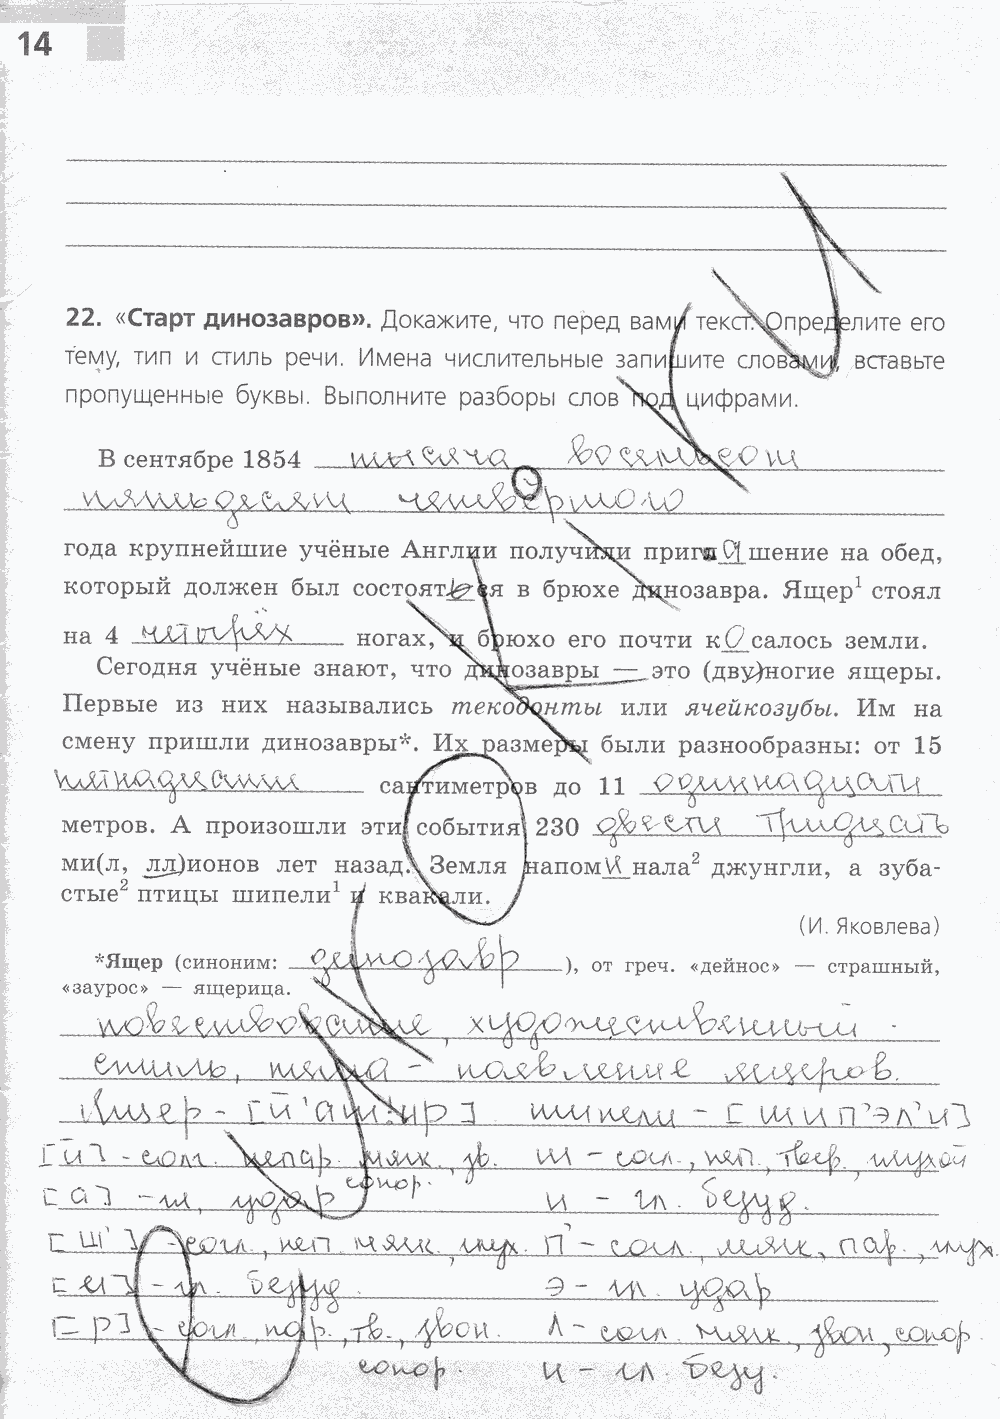 14
22. «Старт динозавров». Докажите, что перед вами текст. Определите его
тему, тип и стиль речи. Имена числительные запишите словами, вставьте
пропущенные буквы. Выполните разборы слов под цифрами.
В сентябре 1854 тысяча восемьсот
пятьдесят четвёртого
года крупнейшие учёные Англии получили приглашение на обед,
который должен был состояться в брюхе динозавра. Ящер¹ стоял
на 4 четырёх ногах, и брюхо его почти косалось земли.
Сегодня учёные знают, что динозавры — это (дву)ногие ящеры.
Первые из них назывались текодонты или ячейкозубы. Им на
смену пришли динозавры*. Их размеры были разнообразны: от 15
пятнадцати сантиметров до 11 одиннадцати
метров. А произошли эти события 230 двести тридцать
ми(л, лл)ионов лет назад. Земля напоминала² джунгли, а зуба-
стые² птицы шипели¹ и квакали.
(И. Яковлева)
*Ящер (синоним: динозавр), от греч. «дейнос» — страшный,
«заурос» — ящерица.
повествование, художественный
стиль, тема - появление ящеров.
Ящер - [й'ащ:ир] шипели - [шип'эл'и]
[й] - согл. непар. мягк., зв. ш - согл., неп., твер., глухой
сонор.
[а] - гл, удар и - гл. безуд.
[ш'] - согл., неп мягк., глух. п' - согл., мягк, пар., глух.
[и] - гл. безуд. э - гл. удар
[р] - согл., пар., тв., звон. л - согл. мягк, звон, сонор.
сонор. и - гл. безу.